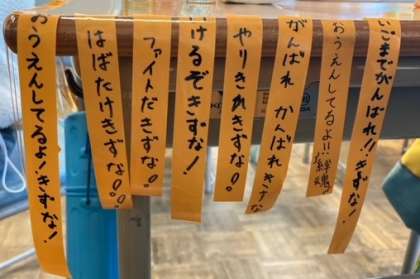 おうえんしてるよ!きずな!
はばたけきずな!!
ファイトだきずな!!
いけるぞきずな!
やりきれきずな!!
がんばれ かんばれきずな
おうえんしてるよ!!絆魂
さいごまでがんばれ!!きずな!